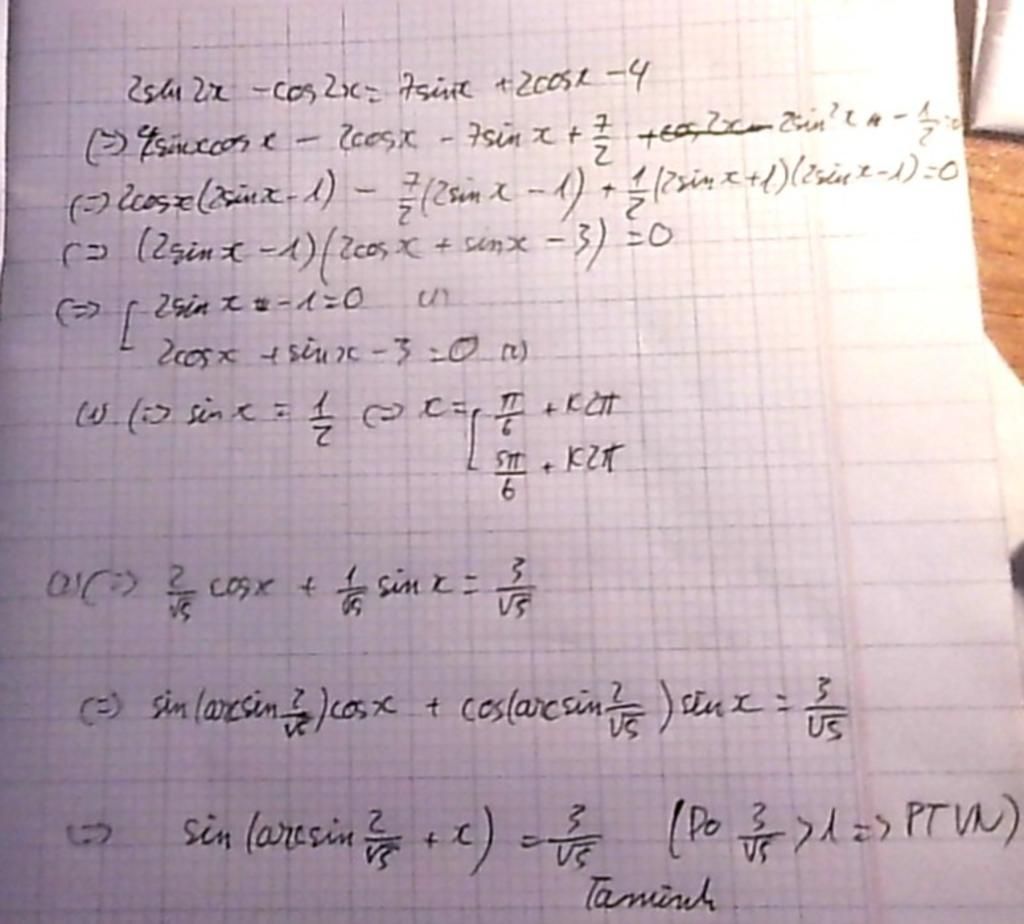 2sin 2x - cos 2x = 7sinx + 2cosx - 4
(=) 4sinxcosx - 2cosx - 7sinx + 7/2 + 2sin²x - 1/2 =
(=) 2cosx(2sinx - 1) - 7/2(2sinx - 1) + 1/2(2sinx+1)(2sinx-1) = 0
(=) (2sinx - 1)(2cosx + sinx - 3) = 0
(=) [ 2sinx - 1 = 0 (1)
2cosx + sinx - 3 = 0 (2)
(1) (=) sinx = 1/2 (=) x = [ π/6 + k2π
5π/6 + k2π
(2) (=) 2/√5 cosx + 1/√5 sinx = 3/√5
(=) sin(arcsin 2/√5)cosx + cos(arcsin 2/√5)sinx = 3/√5
(=) sin(arcsin 2/√5 + x) = 3/√5 (Do 3/√5 > 1 => PTVN)
Taminh